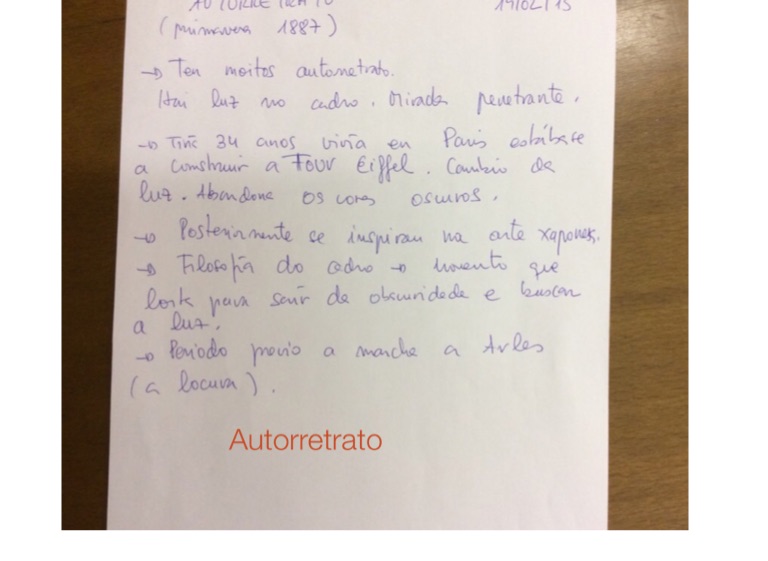 AUTORRETRATO 19/02/15
(primavera 1887)
→ Ten moitos autorretrato.
Hai luz no cadro. Mirada penetrante.
→ Tiña 34 anos vivía en París estábase
a construir a Tour Eiffel. Cambio de
luz. Abandona os cores oscuros.
→ Posteriormente se inspirou na arte xaponesa.
→ Filosofía do cadro → momento que
para saír da obscuridade e buscan
a luz.
→ Período previo a marcha a Arles
(a locura).
Autorretrato